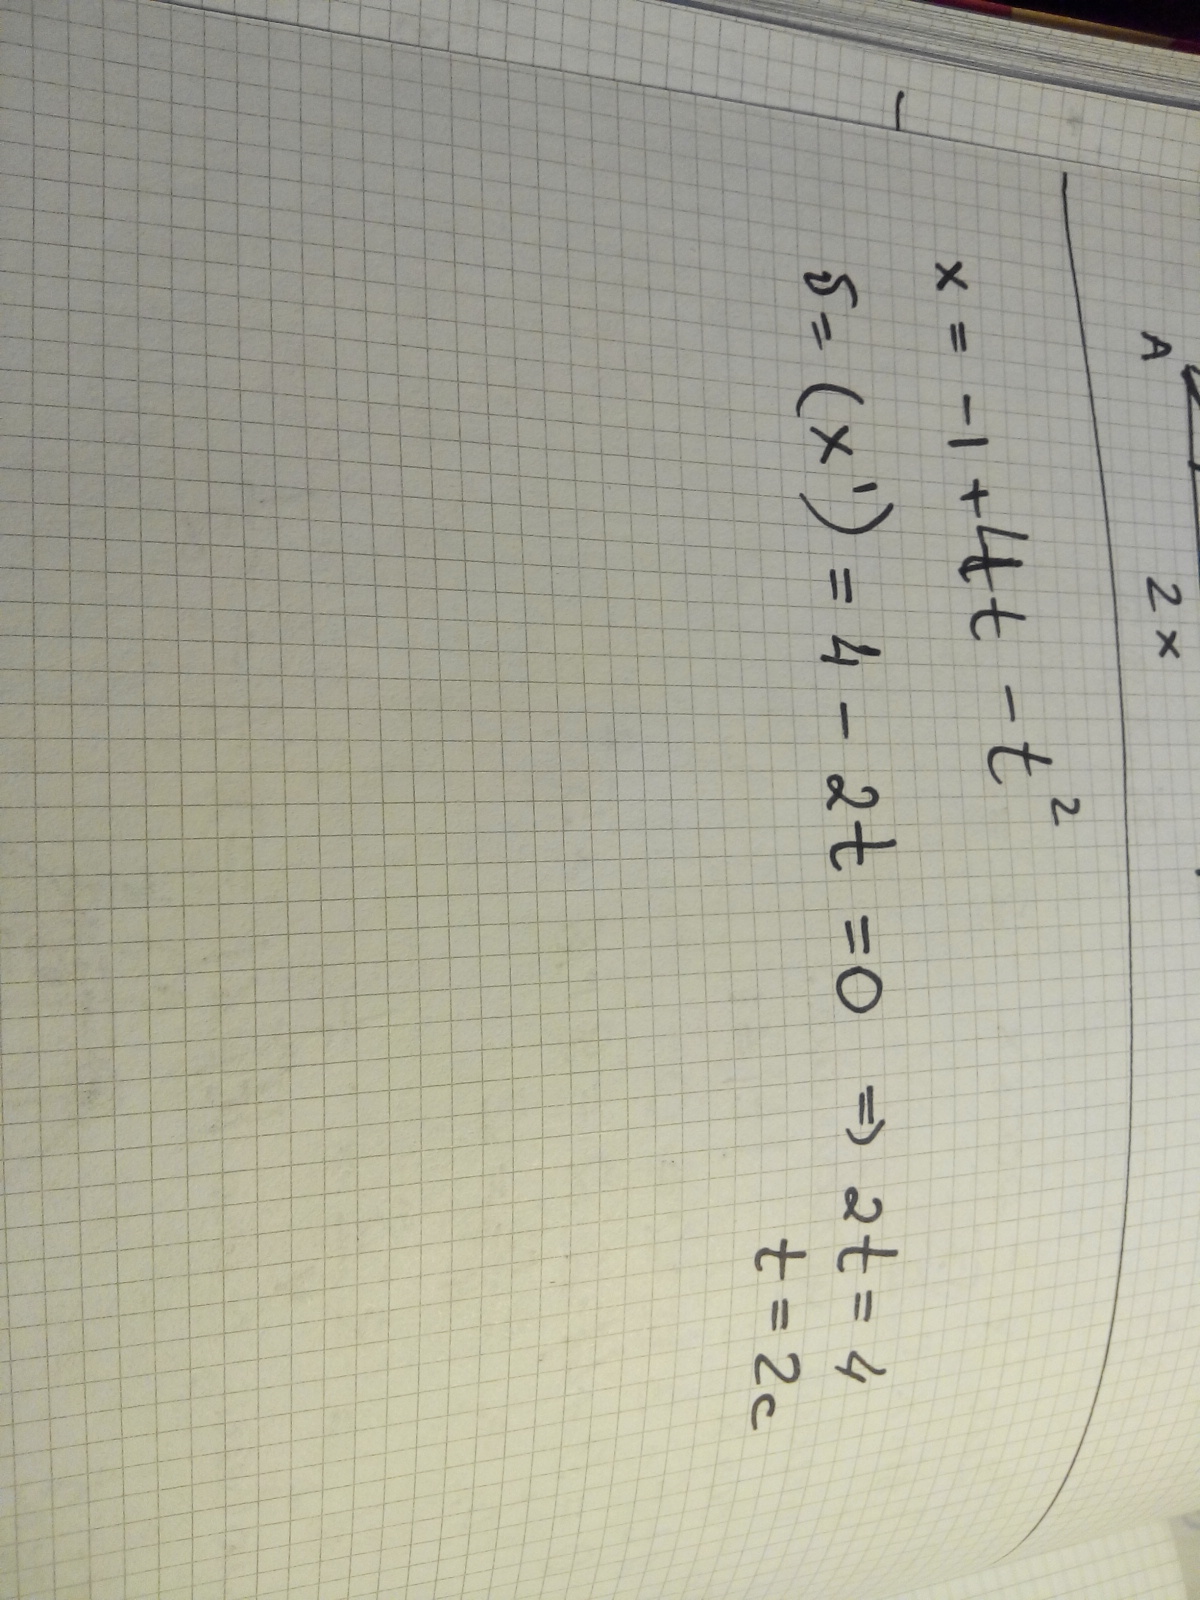 A 2x
x = -1 + 4t - t²
υ = (x') = 4 - 2t = 0 ⇒ 2t = 4
t = 2c